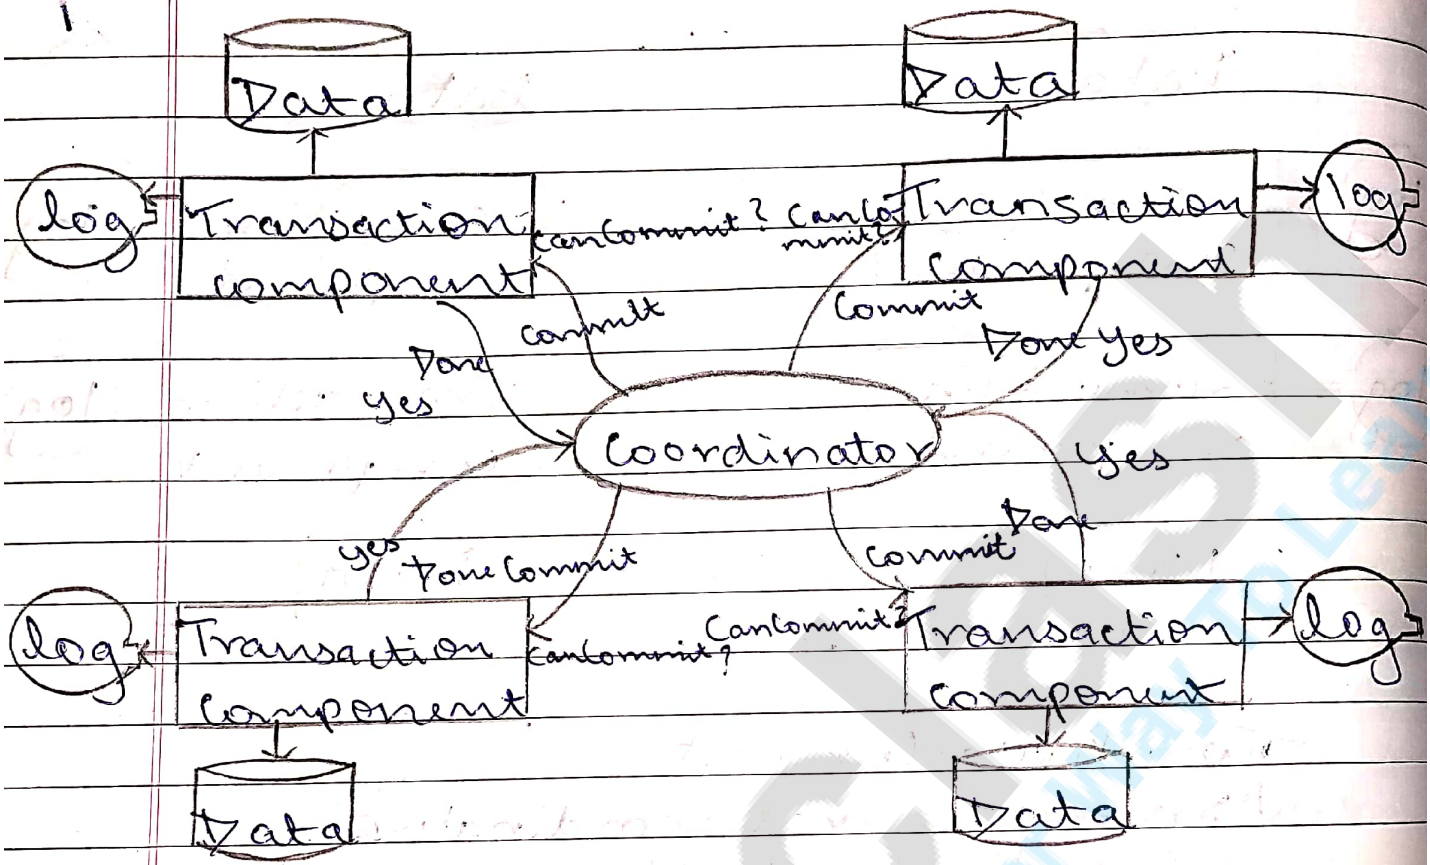 Data
Data
log
Transaction
component
canCommit?
CanCo-
mmit?
Transaction
component
log
Commit
Commit
Done
Yes
Done Yes
Coordinator
Yes
Yes
Done Commit
Commit
Done
log
Transaction
component
canCommit?
CanCommit?
Transaction
component
log
Data
Data
clash
Way To Lear